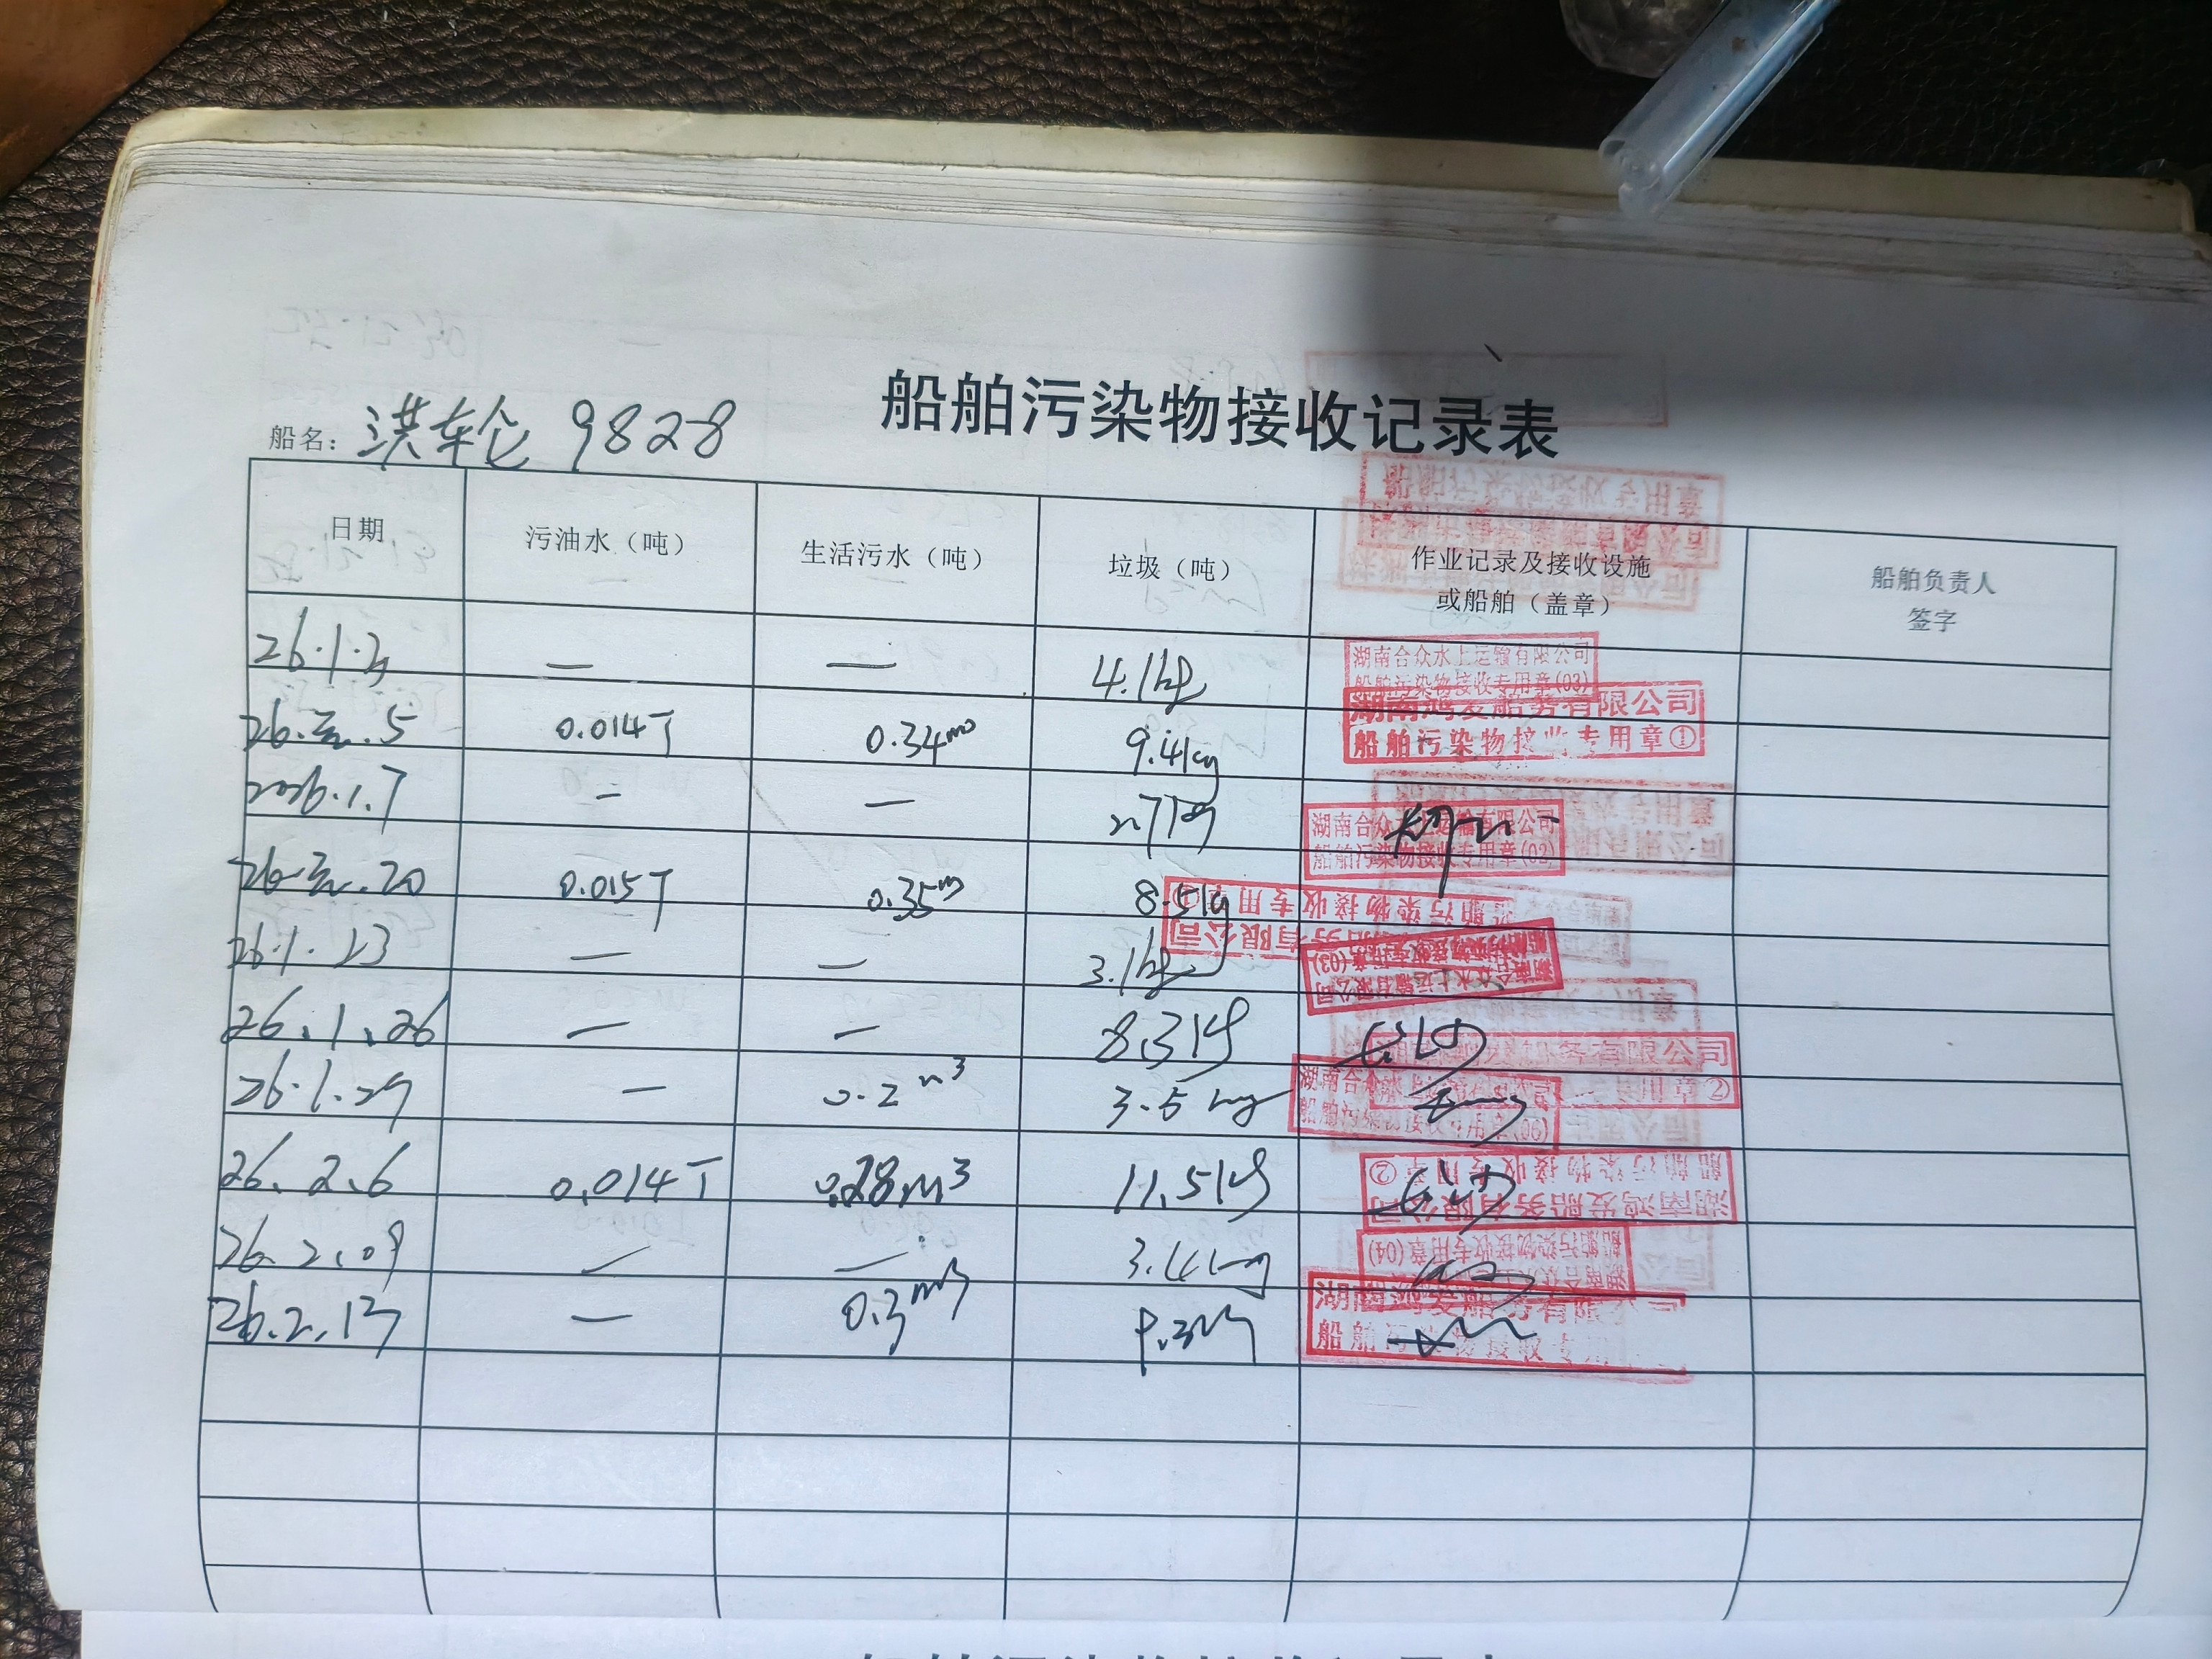 船舶污染物接收记录表
船名：洪轮 9828
日期 污油水（吨） 生活污水（吨） 垃圾（吨） 作业记录及接收设施或船舶（盖章） 船舶负责人签字
26.1.3 — — 4.1kg 湖南合众水上运输有限公司 船舶污染物接收专用章(03)
26.元.5 0.014T 0.34m³ 9.4kg 湖南鸿发船务有限公司 船舶污染物接收专用章①
2026.1.7 — — 2.7kg 湖南合众水上运输有限公司 船舶污染物接收专用章(02)
26.元.20 0.015T 0.35m³ 8.5kg 船舶污染物接收专用章① 船务有限公司
26.1.23 — — 3.1kg 湖南合众水上运输有限公司 船舶污染物接收专用章(03)
26.1.26 — — 8.3kg 务有限公司 专用章②
26.1.29 — 0.2m³ 3.5kg 湖南合众 船舶污染物接收专用章
26.2.6 0.014T 0.28m³ 11.5kg 湖南鸿发船务有限公司 船舶污染物接收专用章②
26.2.09 — — 3.4kg 船舶污染物接收专用章(04)
26.2.13 — 0.3m³ 9.3kg 湖南鸿发船务有限公司 船舶污染物接收专用